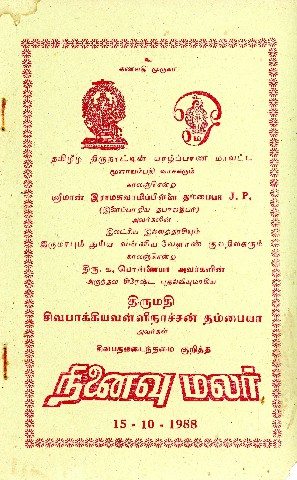 உ
தமிழீழ திருநாட்டின் யாழ்ப்பாண மாவட்ட
காலஞ்சென்ற
ஸ்ரீமான் இராமசுவாமிப்பிள்ளை தம்பையா J. P.
(இளைப்பாறிய தபாலதிபர்)
அவர்களின்
இலட்சிய இல்லத்தரசியும்
காலஞ்சென்ற
திரு. க. பொன்னையா அவர்களின்
அருந்தவ சிரேஷ்ட புதல்வியுமாகிய
திருமதி
சிவபாக்கியவள்ளிநாச்சன் தம்பையா
அவர்கள்
சிவபதமடைந்தமை குறித்த
நினைவு மலர்
15 - 10 - 1988